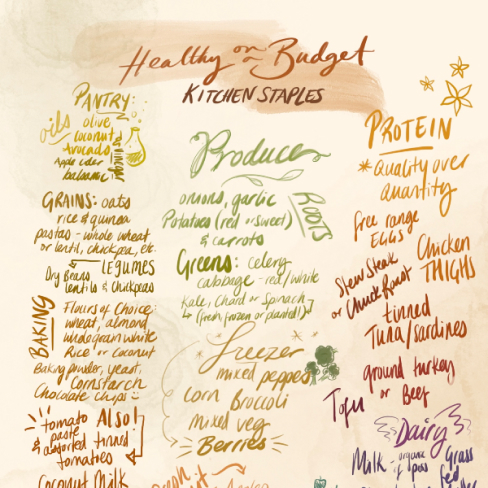 Healthy on a Budget
KITCHEN STAPLES
PANTRY:
oils
olive
coconut
Avocado
Apple cider
balsamic
& vinegar
GRAINS: oats
rice & quinoa
pastas - whole wheat
or lentil, chickpea, etc.
LEGUMES
Dry Beans
lentils & chickpeas
BAKING
Flours of Choice:
wheat, almond,
whole grain white
Rice or coconut
Baking powder, yeast,
Cornstarch
Chocolate chips :)
Also!
tomato
paste
& assorted tinned
tomatoes
Coconut Milk
Produce
ROOTS
onions, garlic
Potatoes (red or sweet)
& carrots
Greens: celery
cabbage - red/white
kale, chard or spinach
↳ (fresh, frozen or planted!)
freezer
mixed peppers
corn Broccoli
mixed veg
Berries
PROTEIN
* quality over
quantity
free range
EGGS
Chicken
THIGHS
Stew Steak
or Chuck Roast
tinned
Tuna/sardines
ground turkey
or Beef
Tofu
Dairy
Milk - organic
Grass
fed